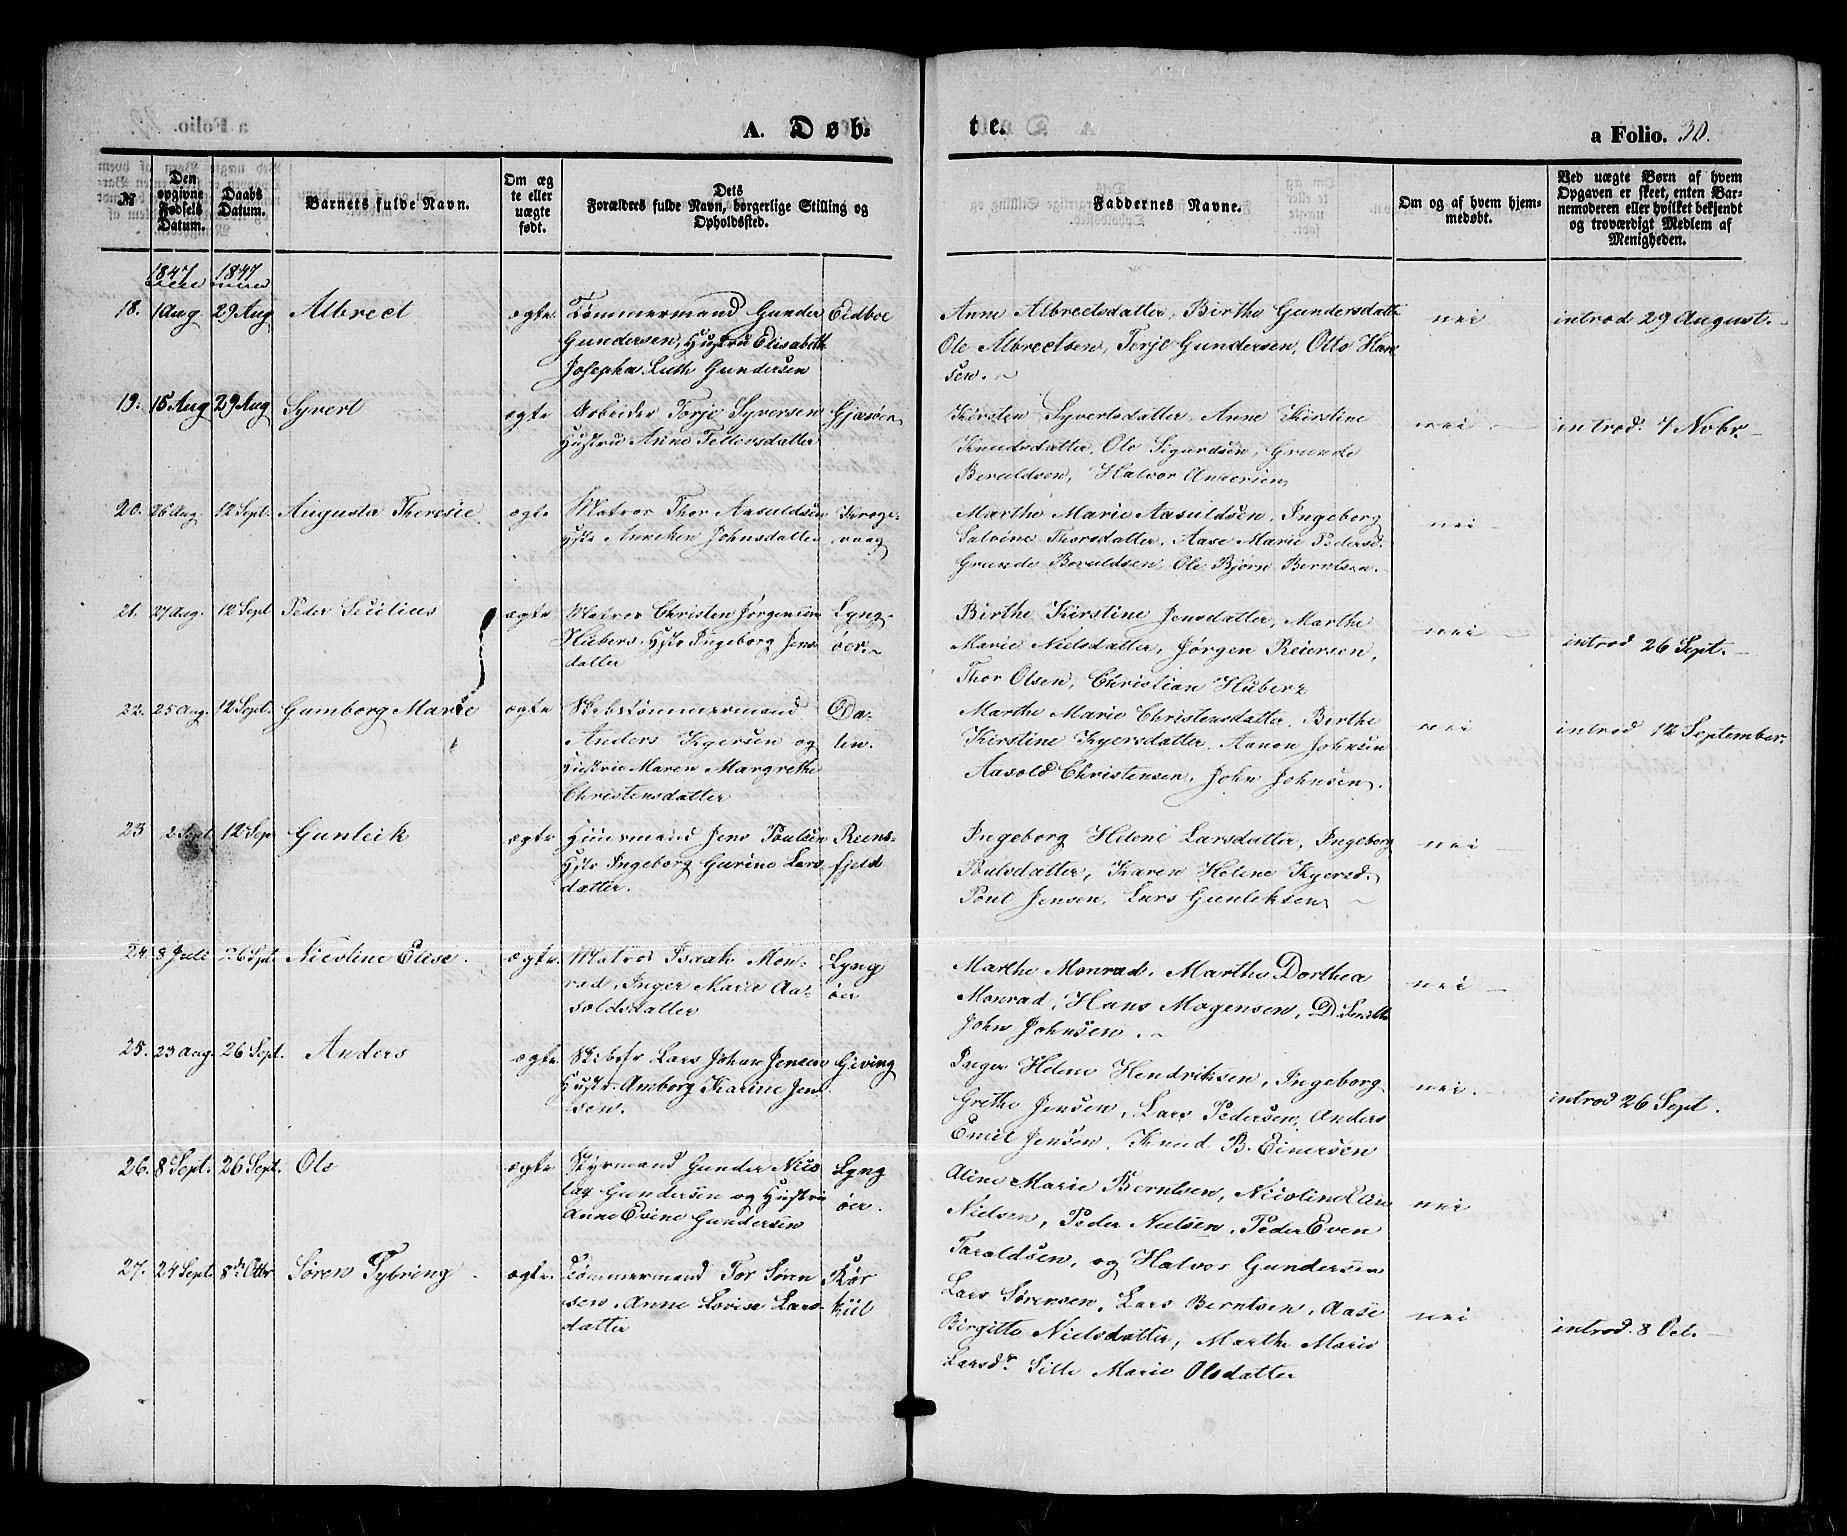 A. Døb-
te.
a Folio. 30.
№
Den opgivne Fødsels Datum.
Daabs Datum.
Barnets fulde Navn.
Om ægte eller uægte født.
Dets Forældres fulde Navn, borgerlige Stilling og Opholdssted.
Faddernes Navne.
Om og af hvem hjemmedøbt.
Ved uægte Børn af hvem Opgaven er skeet, enten Barnemoderen eller hvilket bekjendt og troværdigt Medlem af Menigheden.
1847 1847
18. 1 Aug 29 Aug Albrect ægte Tømmermand Gunder Eidboe
Gundersen, Hustru Elisabeth
Josepha Luth Gundersen
Anne Albrectsdatter, Birthe Gundersdatt
Ole Albrectsen, Terje Gundersen, Otto Han
sen.
nei introd 29 August.
19. 15 Aug 29 Aug Syvert ægte Arbeider Torje Syversen
Hustru Anne Tellevsdatter
Kirsten Syvertsdatter, Anne Kirstine
Knudsdatter, Ole Sigurdsen, Grunde
Beruldsen, Halvor
nei introd. 7 Nvbr.
20. 26 Aug 12 Sept. Augusta Theresie ægte Matros Thor Aasuldsen Krage-
Hstr Anneken Johnsdatter vaag
Marthe Marie Aasuldsen, Ingeborg
Salvine Thorsdatter, Aase Marie Pedersd.
Grunde Beruldsen, Ole Bjørn Berntsen.
nei
21. 27 Aug. 12 Sept Peder ægte Matros Christen Jørgensen Lyng-
Hubers, Hstr Ingeborg Jens- øer.
datter
Birthe Kirstine Jensdatter, Marthe
Marie Nielsdatter, Jørgen Reiersen,
Thor Olsen, Christian Hubert
nei introd 26 Sept.
22. 25 Aug. 12 Sept. Gumborg Marie ægte Skibstømmermand Da-
Anders Kyersen og len.
Hustrue Maren Margrethe
Christensdatter
Marthe Marie Christensdatter, Berthe
Kirstine Kyersdatter, Aanon Johnsen
Aasold Christensen, John Johnsen.
nei introd 12 September.
23 2 Sept. 12 Sep Gunleik ægte Huusmand Jens Poulsen Reens-
Hstr Ingeborg Gurine Lars fjeld
datter.
Ingeborg Helene Larsdatter, Ingeborg
Poulsdatter, Karen Helene Kyersd.
Poul Jensen, Lars Gunleksen
nei
24. 8 Juli 26 Sept. Nicoline Elise. ægte. Matros Isaak Mon- Lyng
rad, Inger Marie Aa- øer
soldsdatter
Marthe Monrad, Marthe Dorthea
Monrad, Hans Mogensen, D. Smith
John Johnsen.
nei
25. 23 Aug. 26 Sept. Anders ægte. Skibsfr Lars Johan Jensen Giving
Hustr. Amborg Karine Jen
sen.
Inger Helene Hendriksen, Ingeborg
Grethe Jensen, Lars Pedersen, Anders
Emil Jensen, Knud B. Einersen
nei. introd 26 Sept.
26. 8 Sept. 26 Sept. Ole ægte Styrmand Gunder Nico Lyng
lay Gundersen og Hustru øer.
Anne Evine Gundersen
Aline Marie Berntsen, Nicoline
Nielsen, Peder Nielsen, Peder Even
Taroldsen, og Halvor Gundersen
nei
27. 24 Sept. 8de Octbr Søren Tybring. ægte. Tømmermand Tor Søren Kør
sen, Anne Lovise Lars- kiil
datter
Lars Sørensen, Lars Berntsen, Aase
Birgitte Nielsdatter, Marthe Marie
Larsdr. Sille Marie Olsdatter
nei introd. 8 Oct.